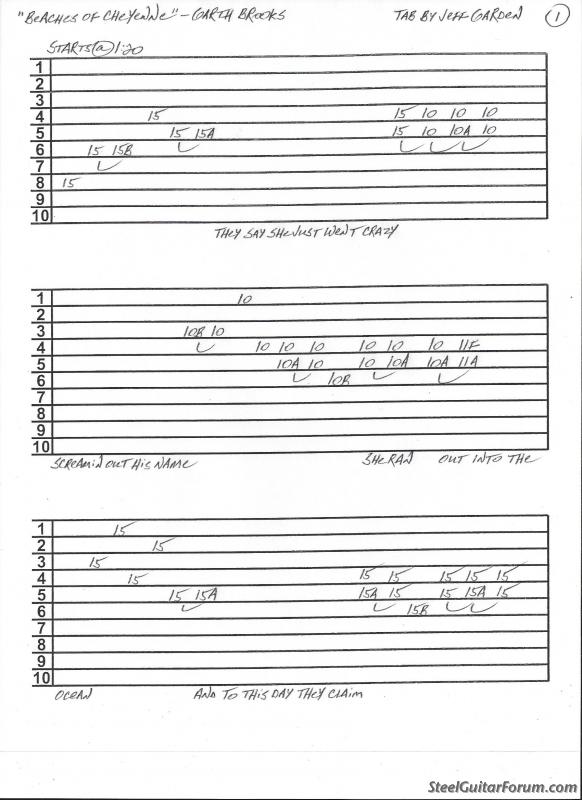 "BEACHES OF CHEYENNE" – GARTH BROOKS TAB BY JEFF GARDEN 1
STARTS @ 1:20
1
2
3
4 15 15 10 10 10
5 15 15A 15 10 10A 10
6 15 15B
7
8 15
9
10
THEY SAY SHE JUST WENT CRAZY
1 10
2
3 10B 10
4 10 10 10 10 10 10 11F
5 10A 10 10 10A 10A 11A
6 10B
7
8
9
10
SCREAMIN OUT HIS NAME SHE RAN OUT INTO THE
1 15
2 15
3 15
4 15 15 15 15 15 15
5 15 15A 15A 15 15 15A 15
6 15B
7
8
9
10
OCEAN AND TO THIS DAY THEY CLAIM
SteelGuitarForum.com